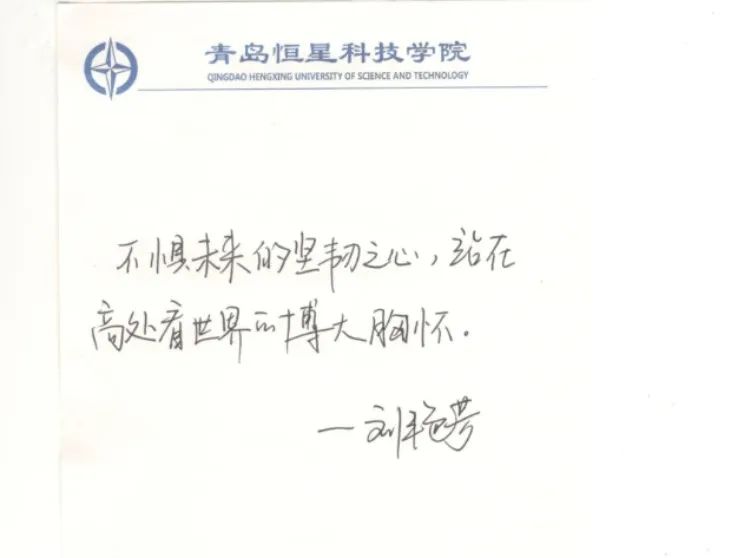 青岛恒星科技学院
QINGDAO HENGXING UNIVERSITY OF SCIENCE AND TECHNOLOGY
不惧未来的坚韧之心，站在
高处看世界的博大胸怀.
—刘艳芳